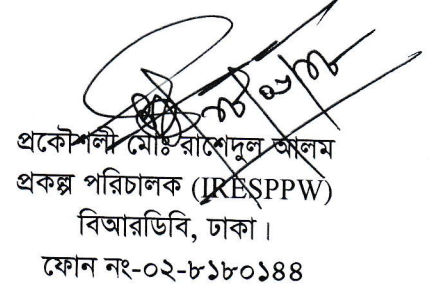 প্রকৌশলী মোঃ রাশেদুল আলম
প্রকল্প পরিচালক (IRESPPW)
বিআরডিবি, ঢাকা।
ফোন নং-০২-৮১৮০১৪৪